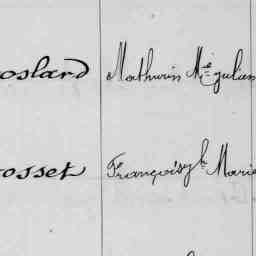 oslard Mathurin M^ie julien
osset Françoise Marie